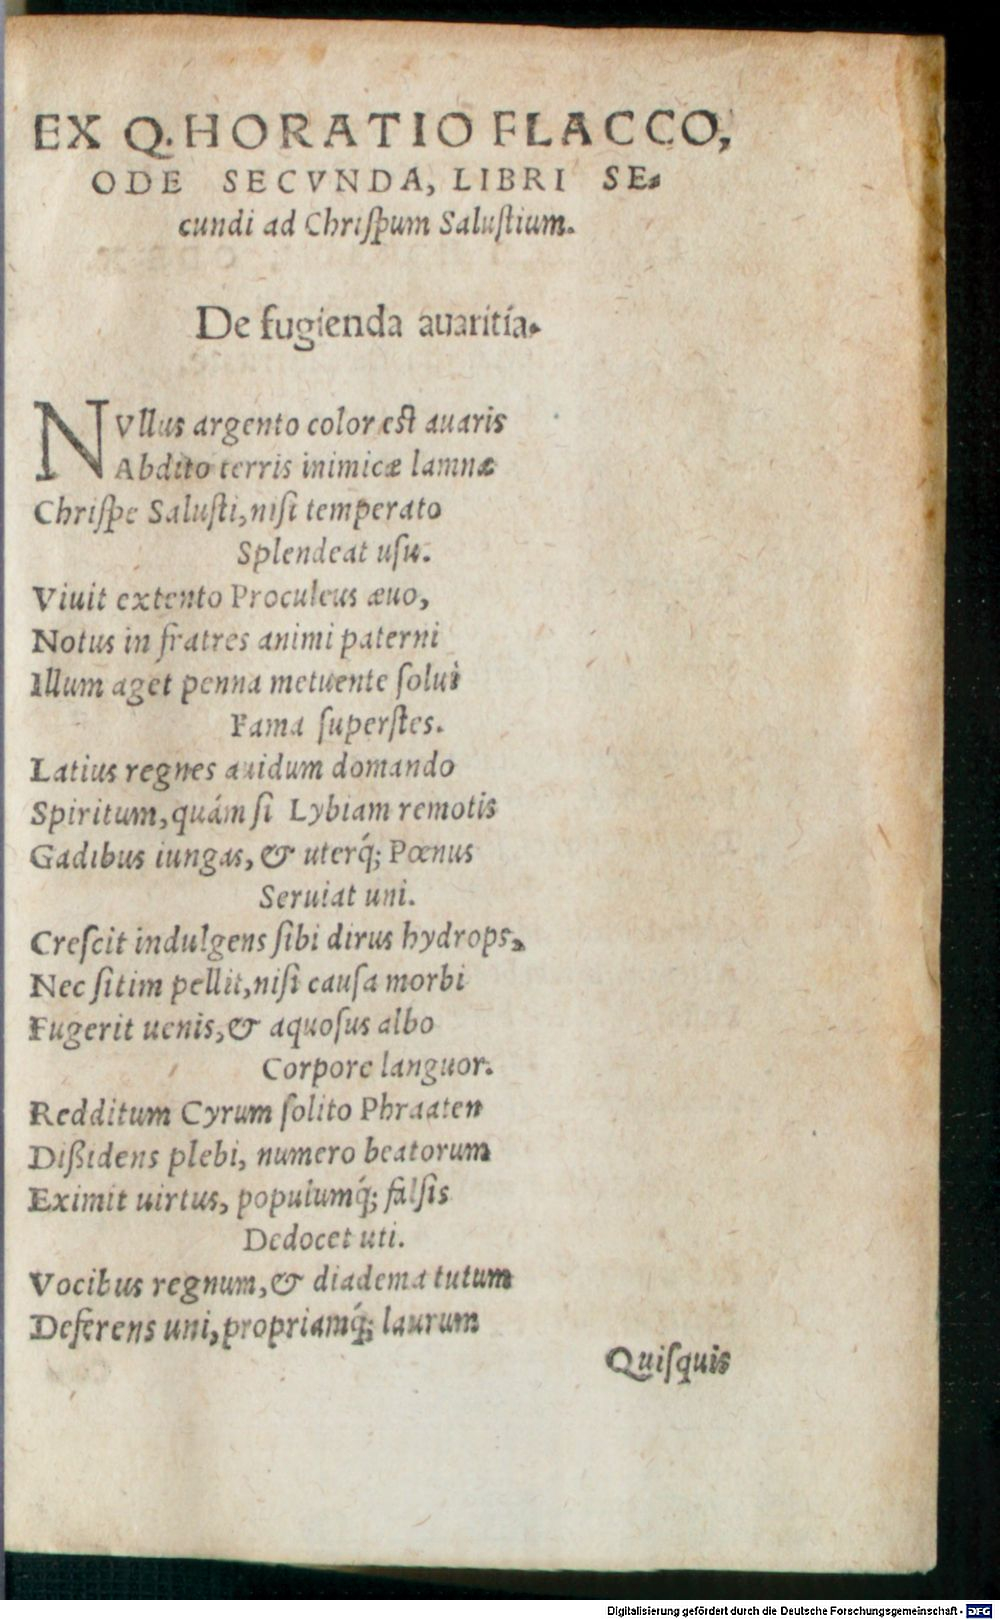 EX Q. HORATIO FLACCO,
ODE SECVNDA, LIBRI SE-
cundi ad Chriſpum Saluſtium.
De fugienda auaritía.
NVllus argento color eſt auaris
Abdito terris inimicæ lamnæ
Chriſpe Saluſti, niſi temperato
Splendeat uſu.
Viuit extento Proculeus æuo,
Notus in fratres animi paterni
Illum aget penna metuente ſolui
Fama ſuperſtes.
Latius regnes auidum domando
Spiritum, quám ſi Lybiam remotis
Gadibus iungas, & uterq́; Pœnus
Seruiat uni.
Creſcit indulgens ſibi dirus hydrops,
Nec ſitim pellit, niſi cauſa morbi
Fugerit uenis, & aquoſus albo
Corpore languor.
Redditum Cyrum ſolito Phraaten
Dißidens plebi, numero beatorum
Eximit uirtus, populumq́; falſis
Dedocet uti.
Vocibus regnum, & diadema tutum
Deferens uni, propriamq́; laurum
Quiſquis
Digitalisierung gefördert durch die Deutsche Forschungsgemeinschaft - DFG